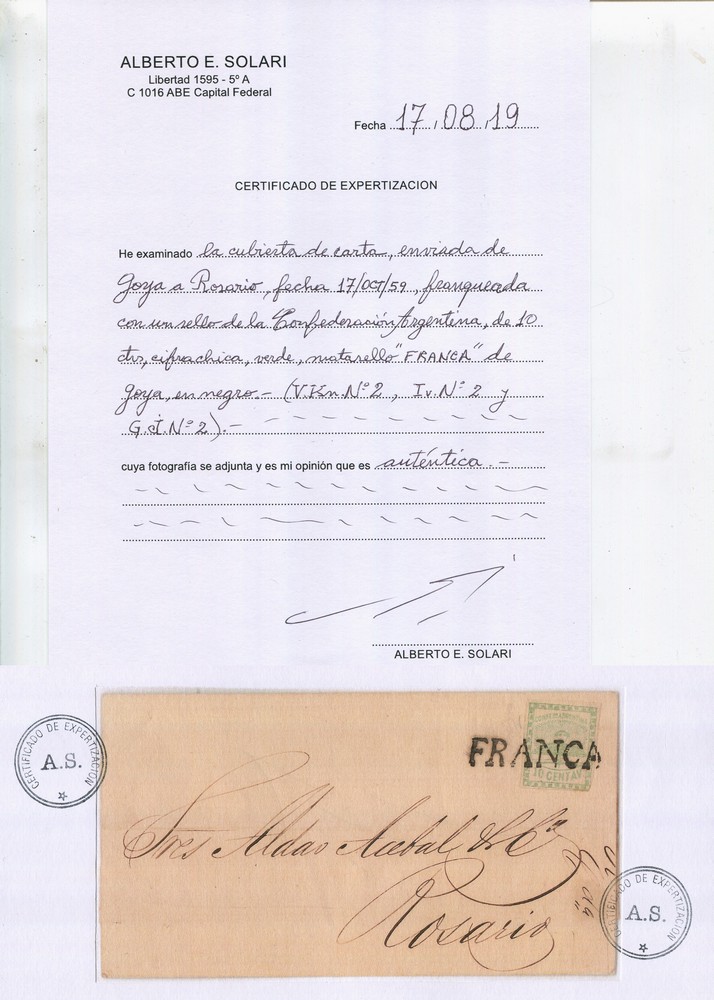 ALBERTO E. SOLARI
Libertad 1595 - 5º A
C 1016 ABE Capital Federal
Fecha 17.08.19
CERTIFICADO DE EXPERTIZACION
He examinado la cubierta de carta, enviada de
Goya a Rosario, fecha 17/OCT/59, franqueada
con un sello de la Confederación Argentina, de 10
ctvs, cifra chica, verde, matasello "FRANCA" de
Goya, en negro - (V.Kn. Nº 2, Iv. Nº 2 y
G.J. Nº 2). -
cuya fotografía se adjunta y es mi opinión que es auténtica. -
ALBERTO E. SOLARI
CERTIFICADO DE EXPERTIZACION
A.S.
FRANCA
10 CENTAV
Sres Aldao Acebal & Cª
Rosario
CERTIFICADO DE EXPERTIZACION
A.S.